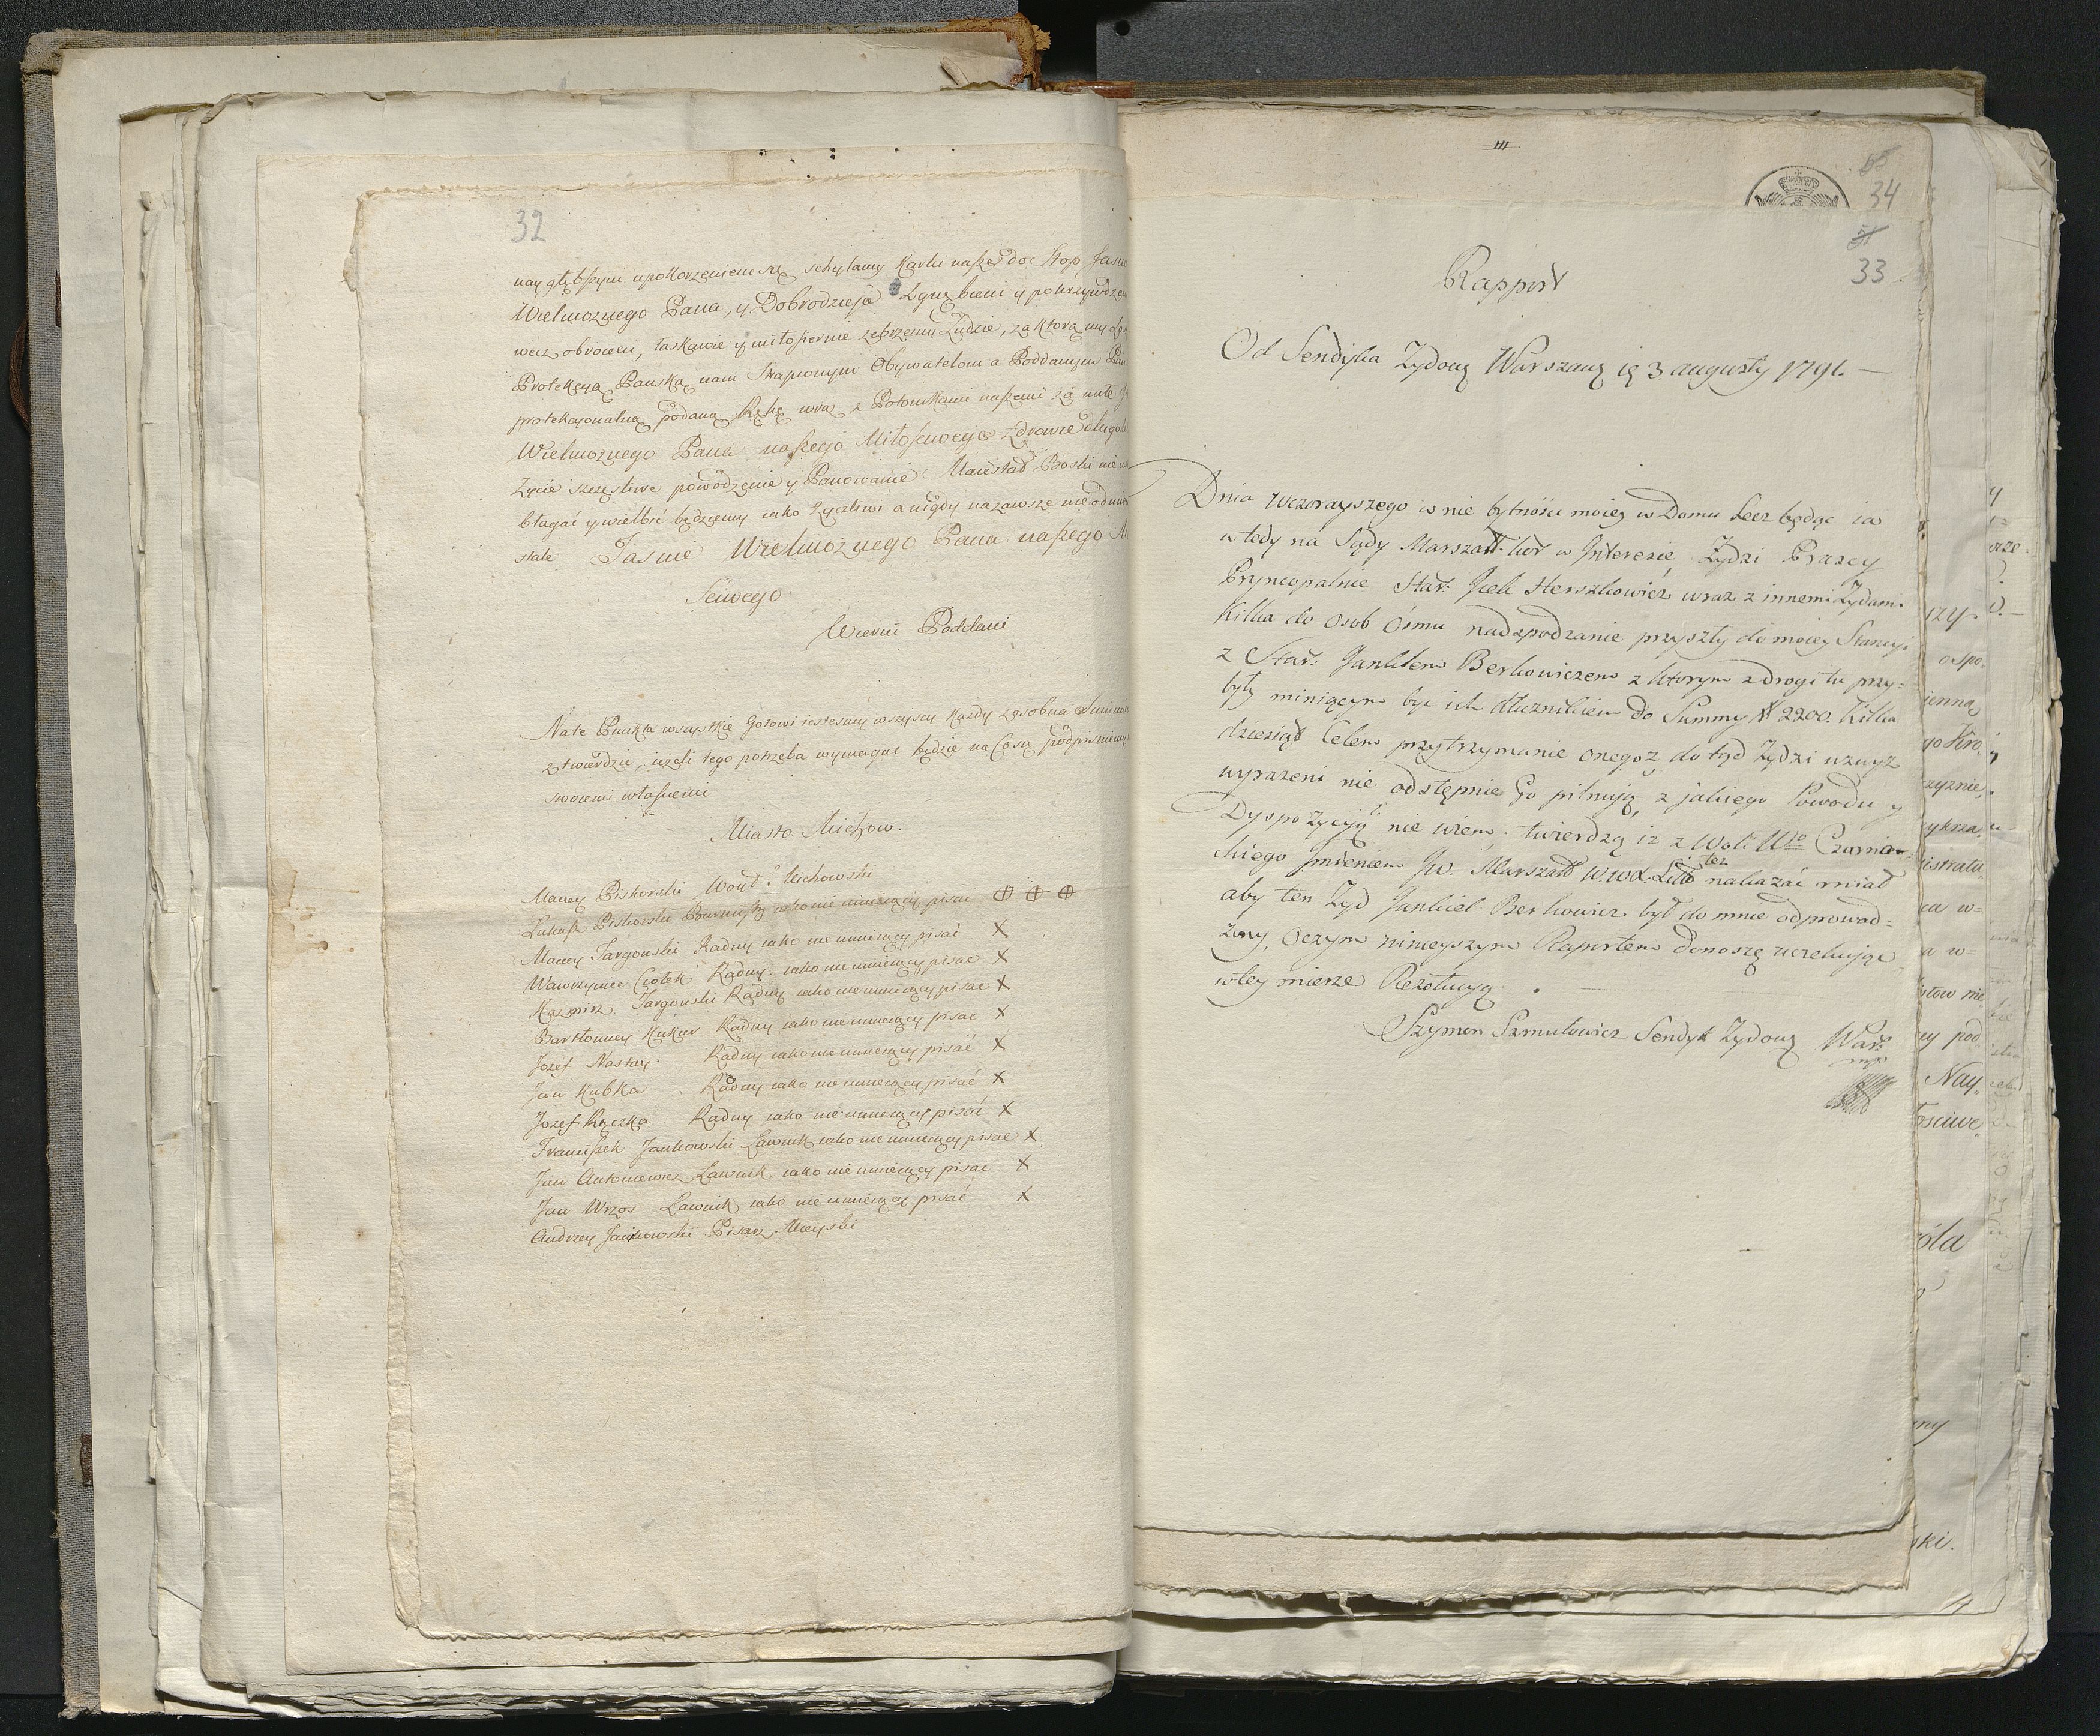 32
nay głębszym upokorzeniem się schylamy Karki nasze do Stop Jasnie
Wielmoznego Pana, y Dobrodzieja Zgnębieni y pokrzywdze
wecz obroceni, łaskawie y miłosiernie zebrzemy Ludzie, za ktorą my
Protekcyą Pańską nam Strapionym Obywatelom a Poddanym Pań
protekcyonalną podaną Rękę wraz z Potomkami naszemi za
Wielmoznego Pana naszego Miłosciwego Zdrowie długole
Zycie szczęsliwe powodzenie y Panowanie Maiestat Boski nie
błagać y wielbić będziemy iako życzliwi a nigdy nazawsze nie odmie
stale Jasnie Wielmoznego Pana naszego M
sciwego
Wierni Poddani
Na te Punkta wszystkie Gotowi iestesmy wszyscy Kazdy zosobna Sumn
ztwierdzic, iezeli tego potrzeba wymagac będzie na Co się podpisuiemy
swoiemi własnemi
Miasto Michow.
Maciey Piskorski Woyt Michowski
Łukasz Piskorski Burmistrz iako nie umieiący pisac ⊕ ⊕ ⊕
Maciey Targonski Radny iako nie umieiący pisać X
Wawrzyniec Ciołek Radny iako nie umieiący pisac X
Kazmirz Targonski Radny iako nie umieiący pisac X
Bartłomiey Kukier Radny iako nie umieiący pisac X
Jozef Nastay Radny iako nie umieiący pisać X
Jan Kubka Radny iako nie umieiący pisać X
Jozef Rączka Radny iako nie umieiący pisać X
Franciszek Jankowski Ławnik iako nie umieiący pisac X
Jan Antoniewicz Ławnik iako nie umieiący pisac X
Jan Wrzos Ławnik iako nie umieiący pisać X
Andrzey Jankowski Pisarz Mieyski
34
33
Rapport
Od Sendyka Zydow Warszaws 3 augusty 1791.
Dnia Wczorayszego w nie bytności moiey w Domu lecz będąc ia
wtedy na Sądy Marszałł. kor w Interesie, Zydzi Prazcy
Pryncopalnie Star: Jcek Herszkowicz wraz z innemi Zydami
Kilka do osob ósmu nadspodzanie przyszły do moiey Stancyi
z Star: Janklem Berkowiczem z ktorym z drogi tu przy=
byly miniącym byc ich dłuznikiem do Summy # 2200. Kilka
dziesiąt Celem przytrzymanie onegoż do tąd Zydzi wzwyz
wyrazeni nie odstępnie Go pilnuią, z jakiego Powodu y
Dyspozycyą nie wiem, twierdzą iz z Woli Czarnie=
ckiego Jmieniem Jw. Marszałł W.W.X. Litt tez nakazać miał
aby ten Zyd Jankiel Berkowicz był do mnie odprowad=
zony, Oczym nimieyszym Raportem donoszę uczekuiąc
w tey mierze Rezolucyą
Szymon Szmulowicz Sendyk Zydow War:
mp